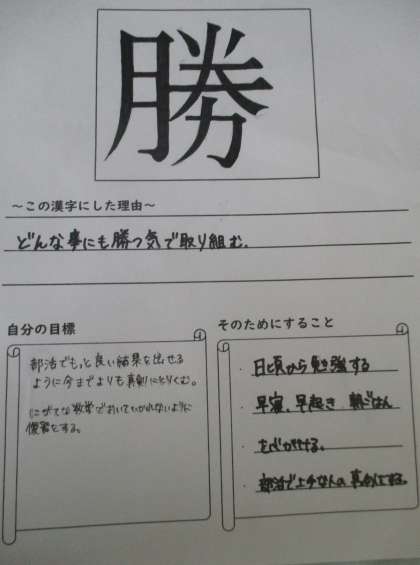 勝
～この漢字にした理由～
どんな事にも勝つ気で取り組む。
自分の目標
部活でもっと良い結果を出せる
ように今までよりも真剣にとりくむ。
にがてな数学でおいていかれないように
復習をする。
そのためにすること
・日頃から勉強する
・早寝、早起き、朝ごはん
を心がける。
・部活で上手な人の真似をする。